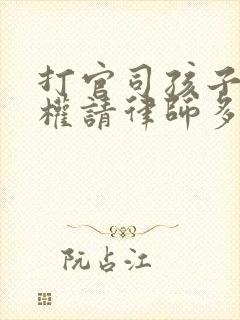 打官司孩子
權請律師多
阮占江